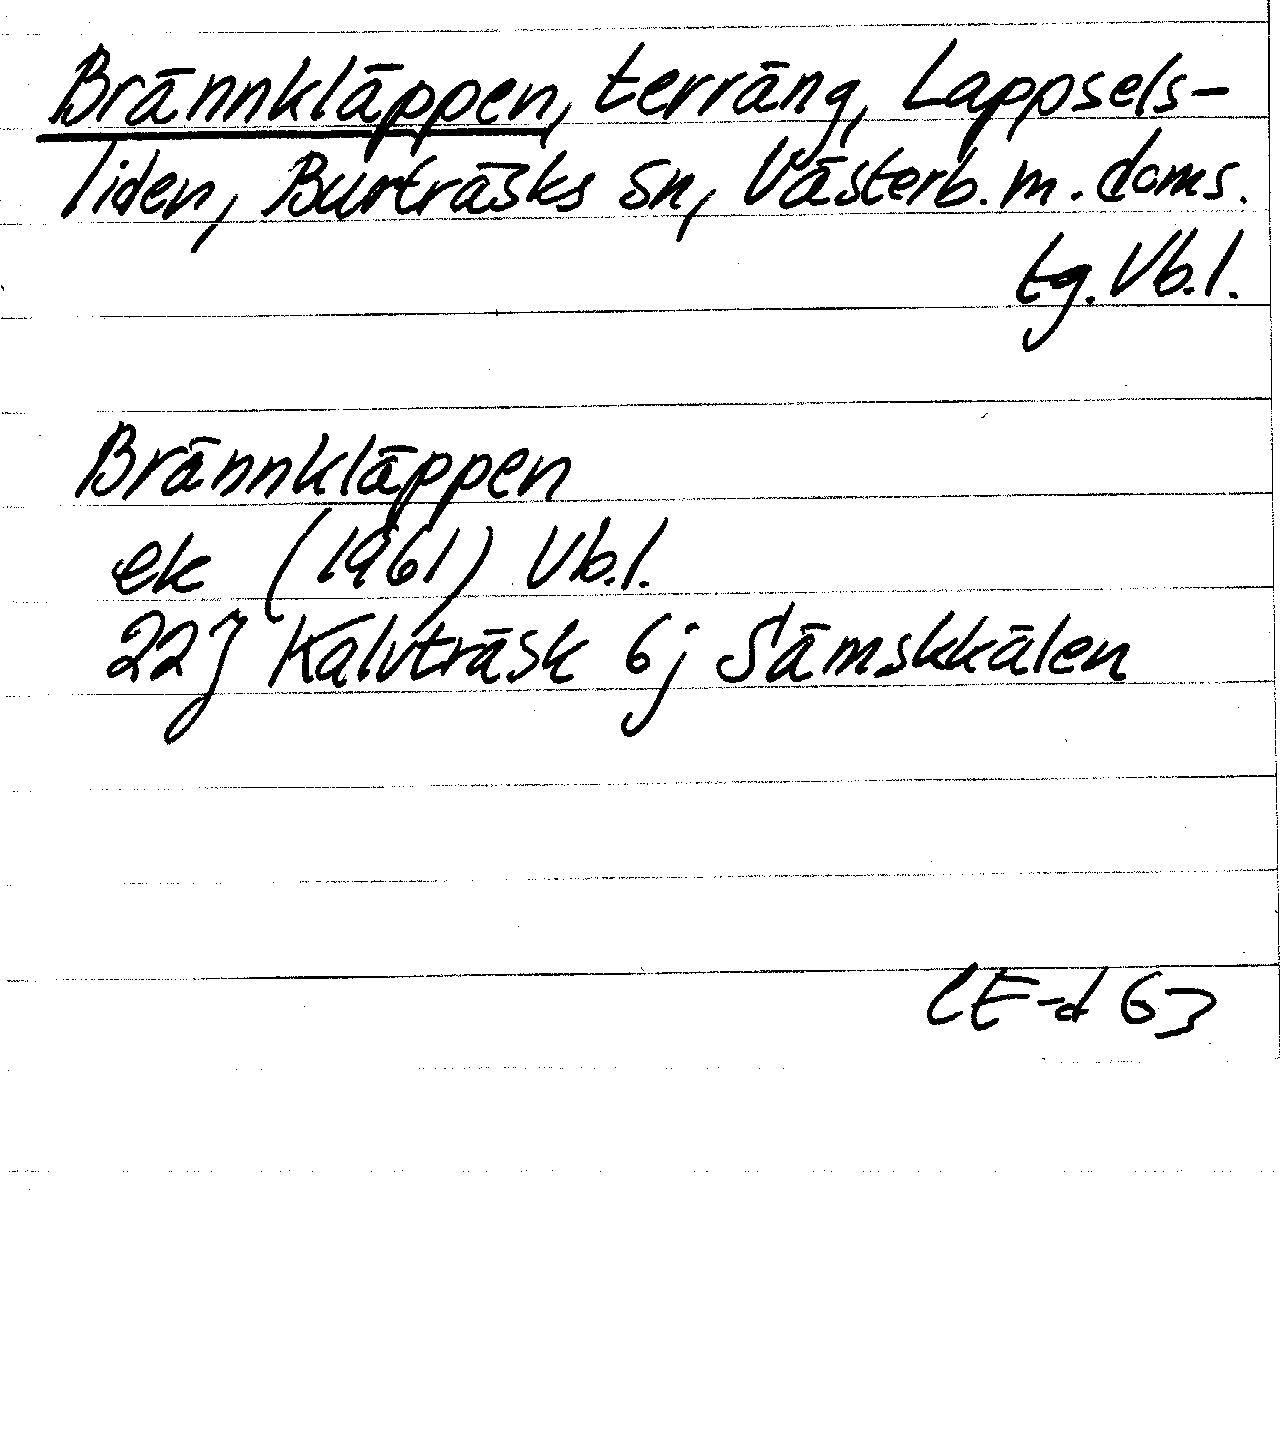 Brännkläppen, terräng, Lappsels-
liden, Burträsks sn, Västerb. m. doms.
tg. Vb. l.
Brännkläppen
ek (1961) Vb. l.
22J Kalvträsk 6j Sämskkälen
CE-d 63